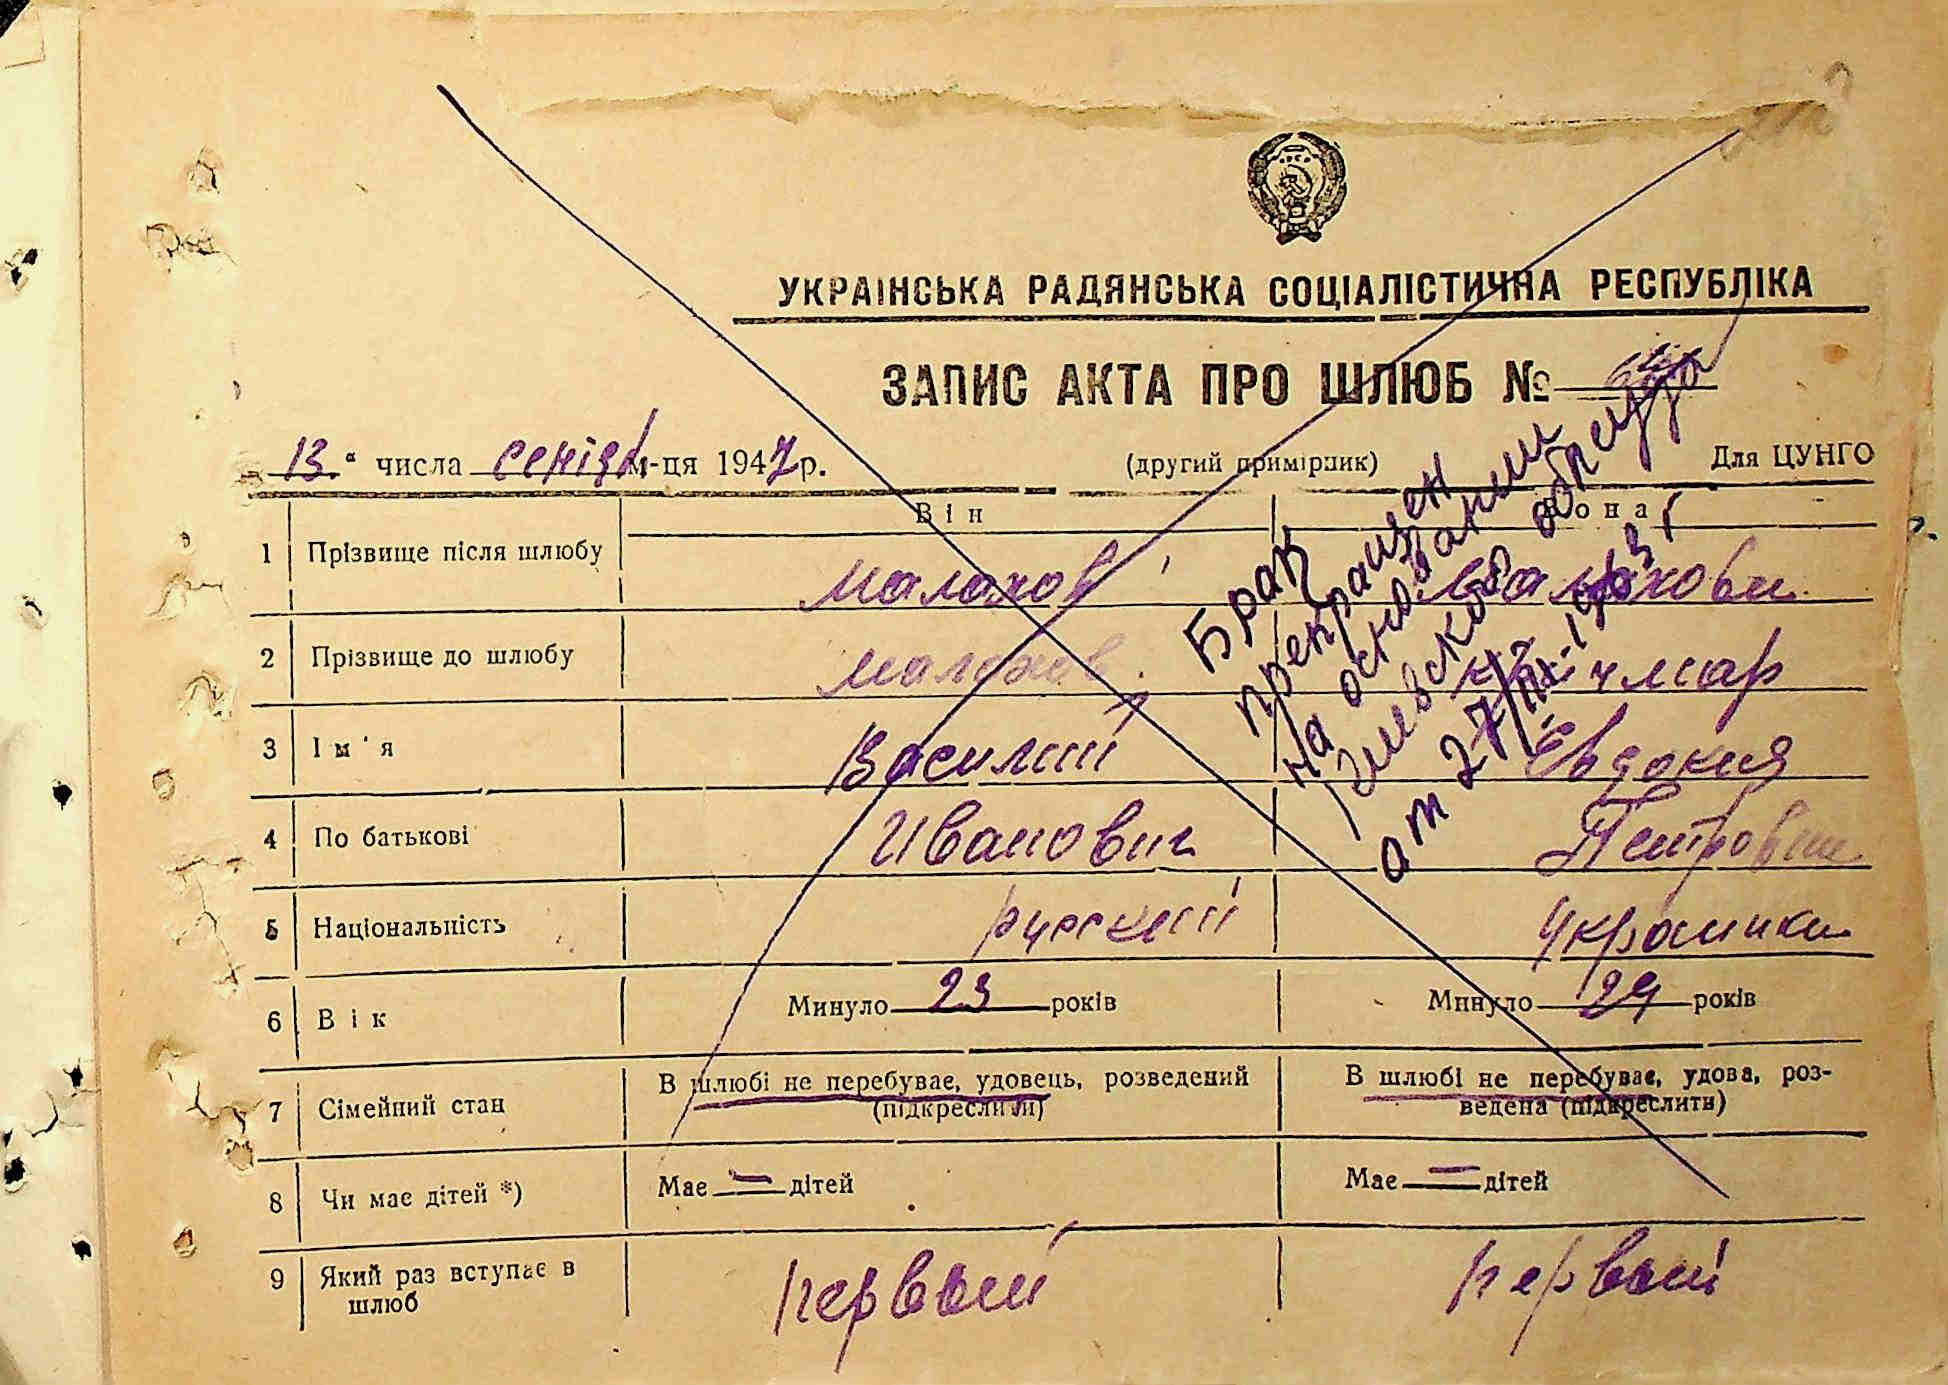 УКРАІНСЬКА РАДЯНСЬКА СОЦІАЛІСТИЧНА РЕСПУБЛІКА
ЗАПИС АКТА ПРО ШЛЮБ №
13 " числа сентяб м-ця 1947 р. (другий примірник) Для ЦУНГО
Він Вона
1 Прізвище після шлюбу Малахов Малахова
2 Прізвище до шлюбу Малахов
3 Ім'я Василий Евдокия
4 По батькові Иванович Петровна
5 Національність русский Украинка
6 Вік Минуло 23 років Минуло 24 років
7 Сімейний стан В шлюбі не перебуває, удовець, розведений (підкреслити) В шлюбі не перебуває, удова, роз-
ведена (підкреслити)
8 Чи має дітей *) Має — дітей Має — дітей
9 Який раз вступає в
шлюб первый первый
Брак
прекращен
на основании
от 27/